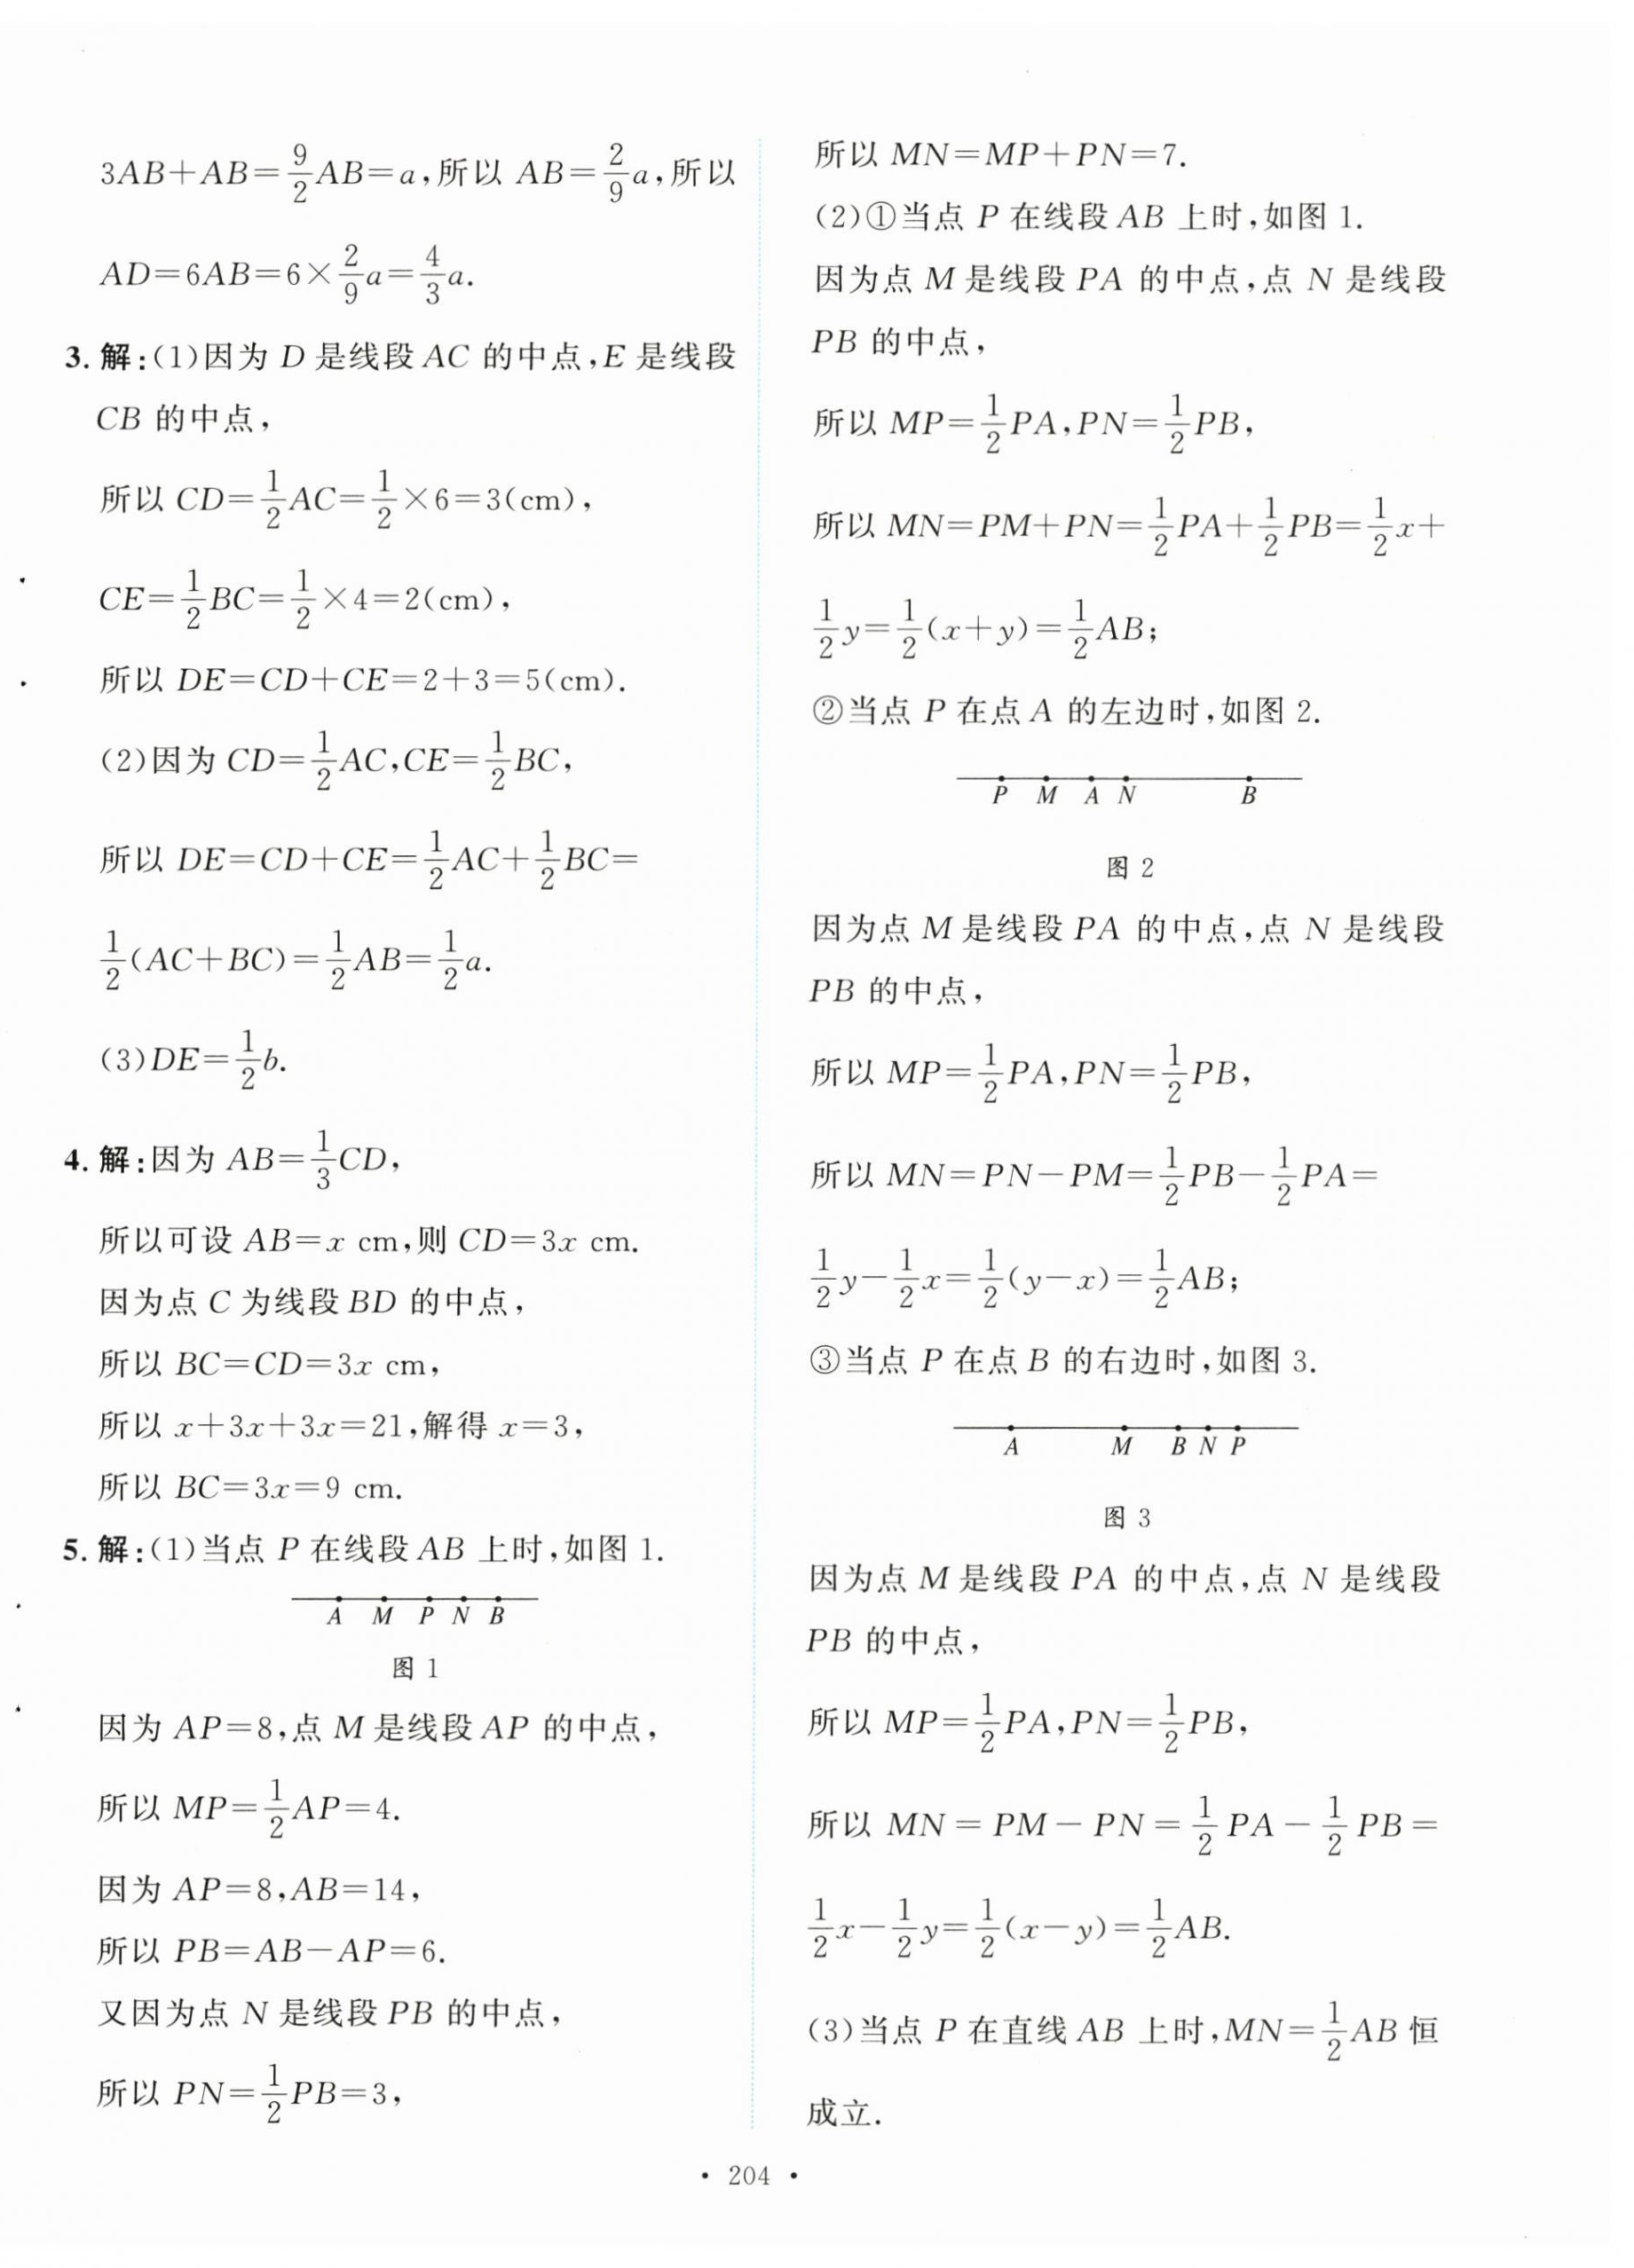 3AB+AB=9/2AB=a,所以 AB=2/9a,所以
AD=6AB=6×2/9a=4/3a.
3. 解:(1)因为 D 是线段 AC 的中点,E 是线段
CB 的中点,
所以 CD=1/2AC=1/2×6=3(cm),
CE=1/2BC=1/2×4=2(cm),
所以 DE=CD+CE=2+3=5(cm).
(2)因为 CD=1/2AC,CE=1/2BC,
所以 DE=CD+CE=1/2AC+1/2BC=
1/2(AC+BC)=1/2AB=1/2a.
(3)DE=1/2b.
4. 解:因为 AB=1/3CD,
所以可设 AB=x cm,则 CD=3x cm.
因为点 C 为线段 BD 的中点,
所以 BC=CD=3x cm,
所以 x+3x+3x=21,解得 x=3,
所以 BC=3x=9 cm.
5. 解:(1)当点 P 在线段 AB 上时,如图 1.
A M P N B
图 1
因为 AP=8,点 M 是线段 AP 的中点,
所以 MP=1/2AP=4.
因为 AP=8,AB=14,
所以 PB=AB-AP=6.
又因为点 N 是线段 PB 的中点,
所以 PN=1/2PB=3,
所以 MN=MP+PN=7.
(2)①当点 P 在线段 AB 上时,如图 1.
因为点 M 是线段 PA 的中点,点 N 是线段
PB 的中点,
所以 MP=1/2PA,PN=1/2PB,
所以 MN=PM+PN=1/2PA+1/2PB=1/2x+
1/2y=1/2(x+y)=1/2AB;
②当点 P 在点 A 的左边时,如图 2.
P M A N B
图 2
因为点 M 是线段 PA 的中点,点 N 是线段
PB 的中点,
所以 MP=1/2PA,PN=1/2PB,
所以 MN=PN-PM=1/2PB-1/2PA=
1/2y-1/2x=1/2(y-x)=1/2AB;
③当点 P 在点 B 的右边时,如图 3.
A M B N P
图 3
因为点 M 是线段 PA 的中点,点 N 是线段
PB 的中点,
所以 MP=1/2PA,PN=1/2PB,
所以 MN=PM-PN=1/2PA-1/2PB=
1/2x-1/2y=1/2(x-y)=1/2AB.
(3)当点 P 在直线 AB 上时,MN=1/2AB 恒
成立.
• 204 •